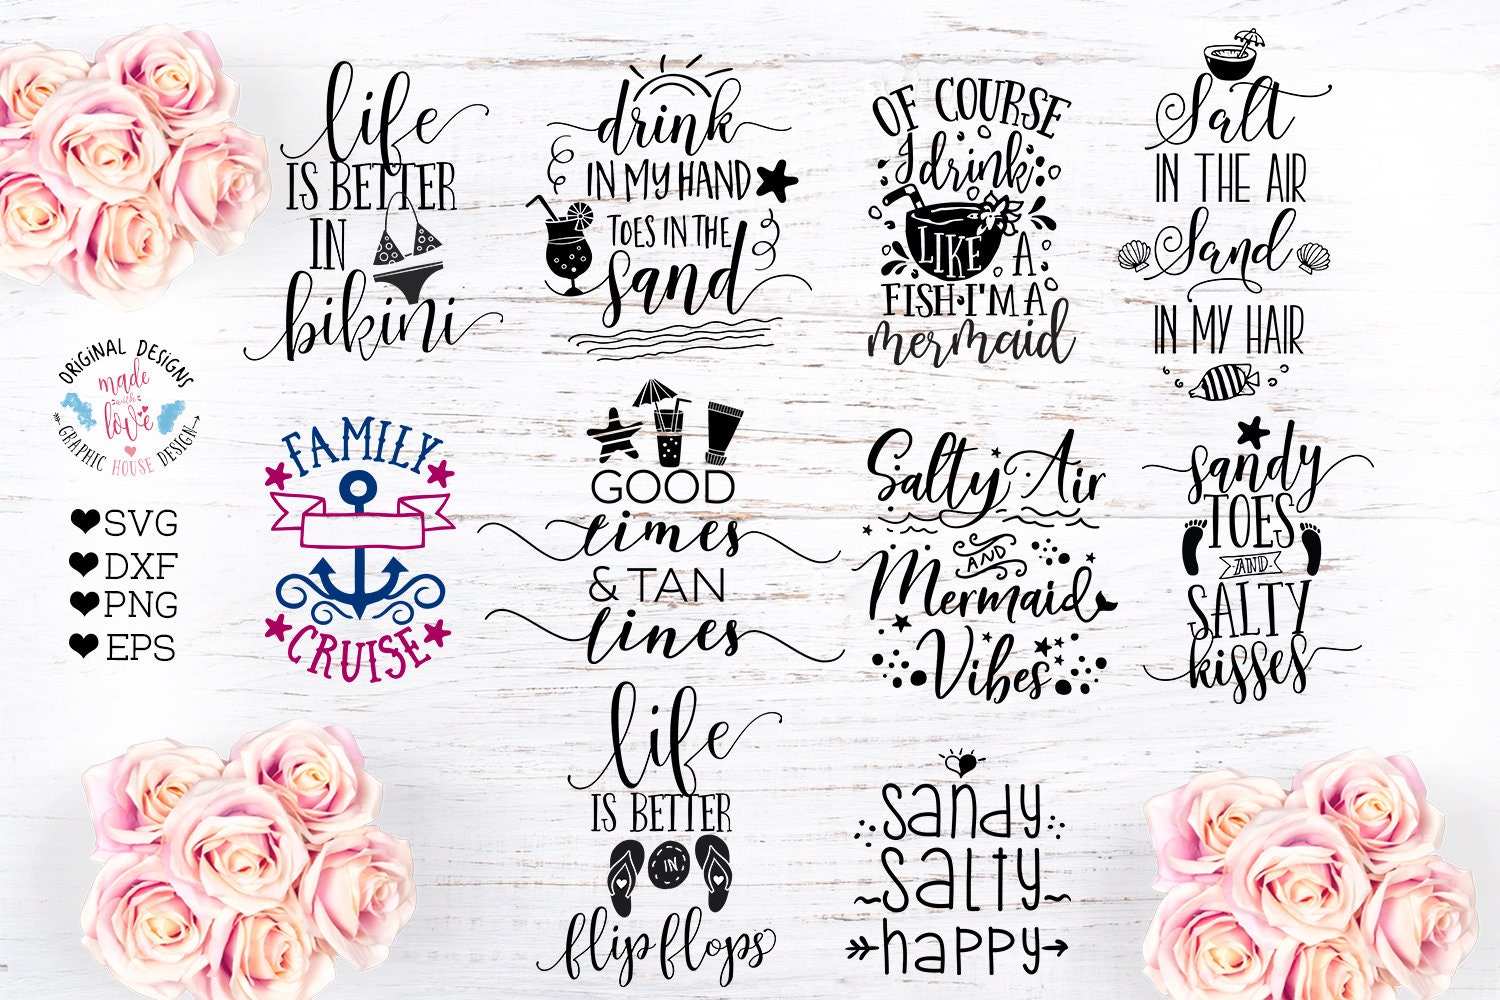 life
IS BETTER
IN
bikini
drink
IN MY HAND
TOES IN THE
sand
OF COURSE
I drink
LIKE A
FISH·I'M A
mermaid
Salt
IN THE AIR
Sand
IN MY HAIR
ORIGINAL DESIGNS
made
with
love
GRAPHIC HOUSE DESIGN
SVG
DXF
PNG
EPS
FAMILY
CRUISE
GOOD
times
& TAN
lines
Salty Air
AND
Mermaid
Vibes
sandy
TOES
AND
SALTY
kisses
life
IS BETTER
IN
flip flops
sandy
salty
happy